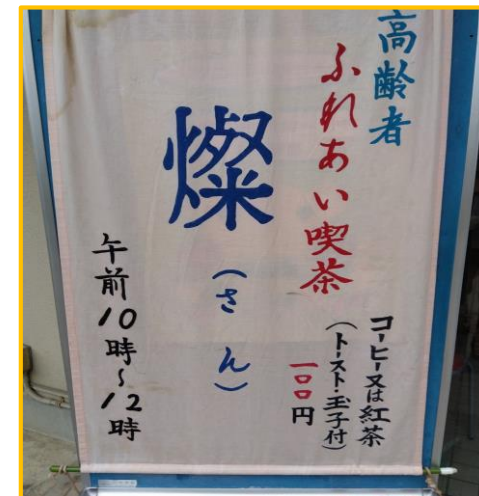 高齢者
ふれあい喫茶
コーヒー又は紅茶
(トースト・玉子付)
一〇〇円
燦
(さん)
午前10時~12時